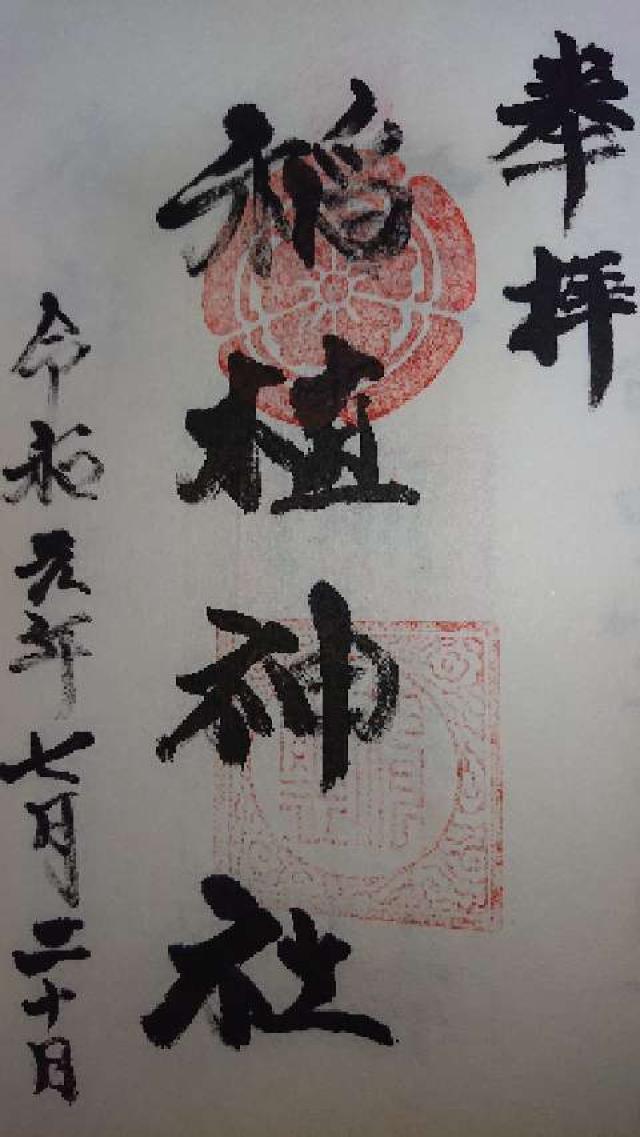 奉拝
稲植神社
令和元年七月二十日